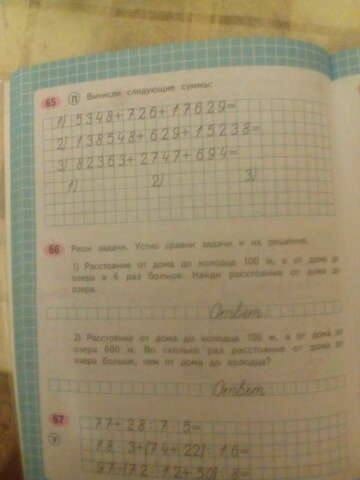 65 П Вычисли следующие суммы:
1) 5348+726+17629=
2) 138548+629+15238=
3) 82363+2747+694=
1) 2) 3)
66 Реши задачи. Устно сравни задачи и их решения.
1) Расстояние от дома до колодца 100 м, а от дома до
озера в 6 раз больше. Найди расстояние от дома до
озера.
Ответ
2) Расстояние от дома до колодца 100 м, а от дома до
озера 600 м. Во сколько раз расстояние от дома до
озера больше, чем от дома до колодца?
Ответ
67 77+28:7·5=
У 18·3+(74+22):16=
97-(72:12+50):8=